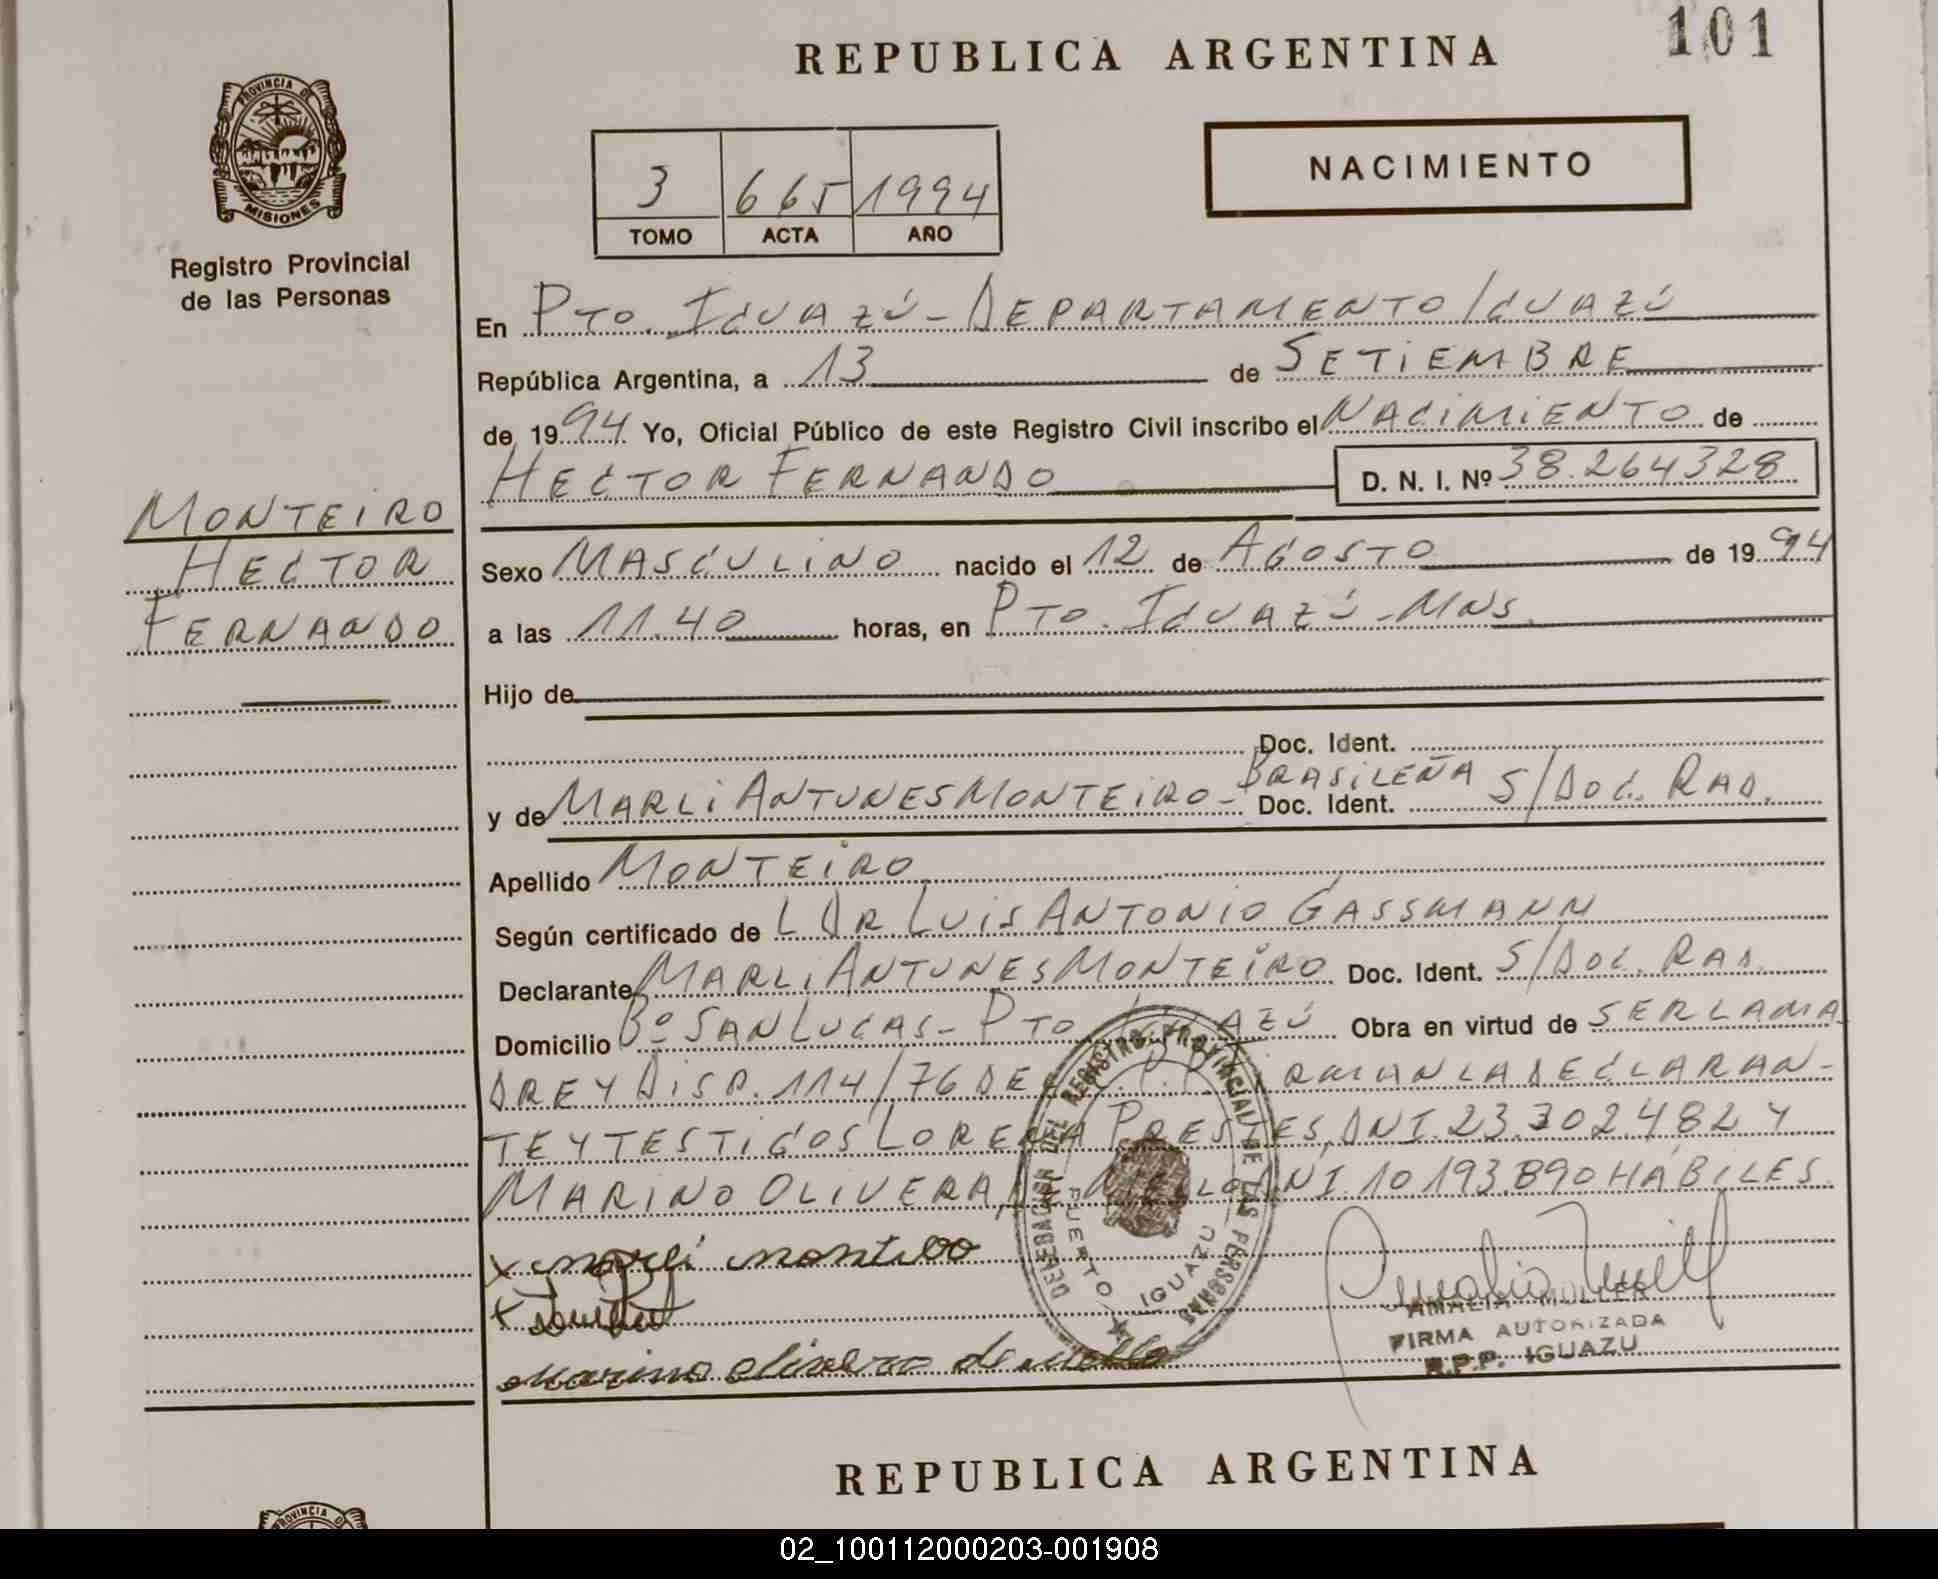 101
REPUBLICA ARGENTINA
PROVINCIA DE
MISIONES
NACIMIENTO
3 665 1994
TOMO ACTA AÑO
Registro Provincial
de las Personas
En PTO. IGUAZÚ - DEPARTAMENTO IGUAZÚ
República Argentina, a 13 de SETIEMBRE
de 1994 Yo, Oficial Público de este Registro Civil inscribo el NACIMIENTO de
HECTOR FERNANDO D. N. I. Nº 38.264328
MONTEIRO
HECTOR
FERNANDO
Sexo MASCULINO nacido el 12 de AGOSTO de 1994
a las 11.40 horas, en PTO. IGUAZÚ - MNS.
Hijo de
Doc. Ident.
y de MARLI ANTUNES MONTEIRO - BRASILEÑA Doc. Ident. S/DOC. RAD.
Apellido MONTEIRO
Según certificado de L DR LUIS ANTONIO GASSMANN
Declarante MARLI ANTUNES MONTEIRO Doc. Ident. S/DOC. RAD.
Domicilio Bº SAN LUCAS - PTO IGUAZÚ Obra en virtud de SER LA MA
DRE Y DISP. 114/76 DE FIRMAN LA DECLARAN-
TE Y TESTIGOS LORENA PRESTES, DNI. 23.302482 Y
MARINO OLIVERA, DNI 10193.890 HÁBILES.
x marli monteiro
marino olivera de mello
DELEGACION DEL REGISTRO PROVINCIAL DE LAS PERSONAS
PUERTO IGUAZU
AMALIA MULLER
FIRMA AUTORIZADA
R.P.P. IGUAZU
REPUBLICA ARGENTINA
PROVINCIA DE
02_100112000203-001908